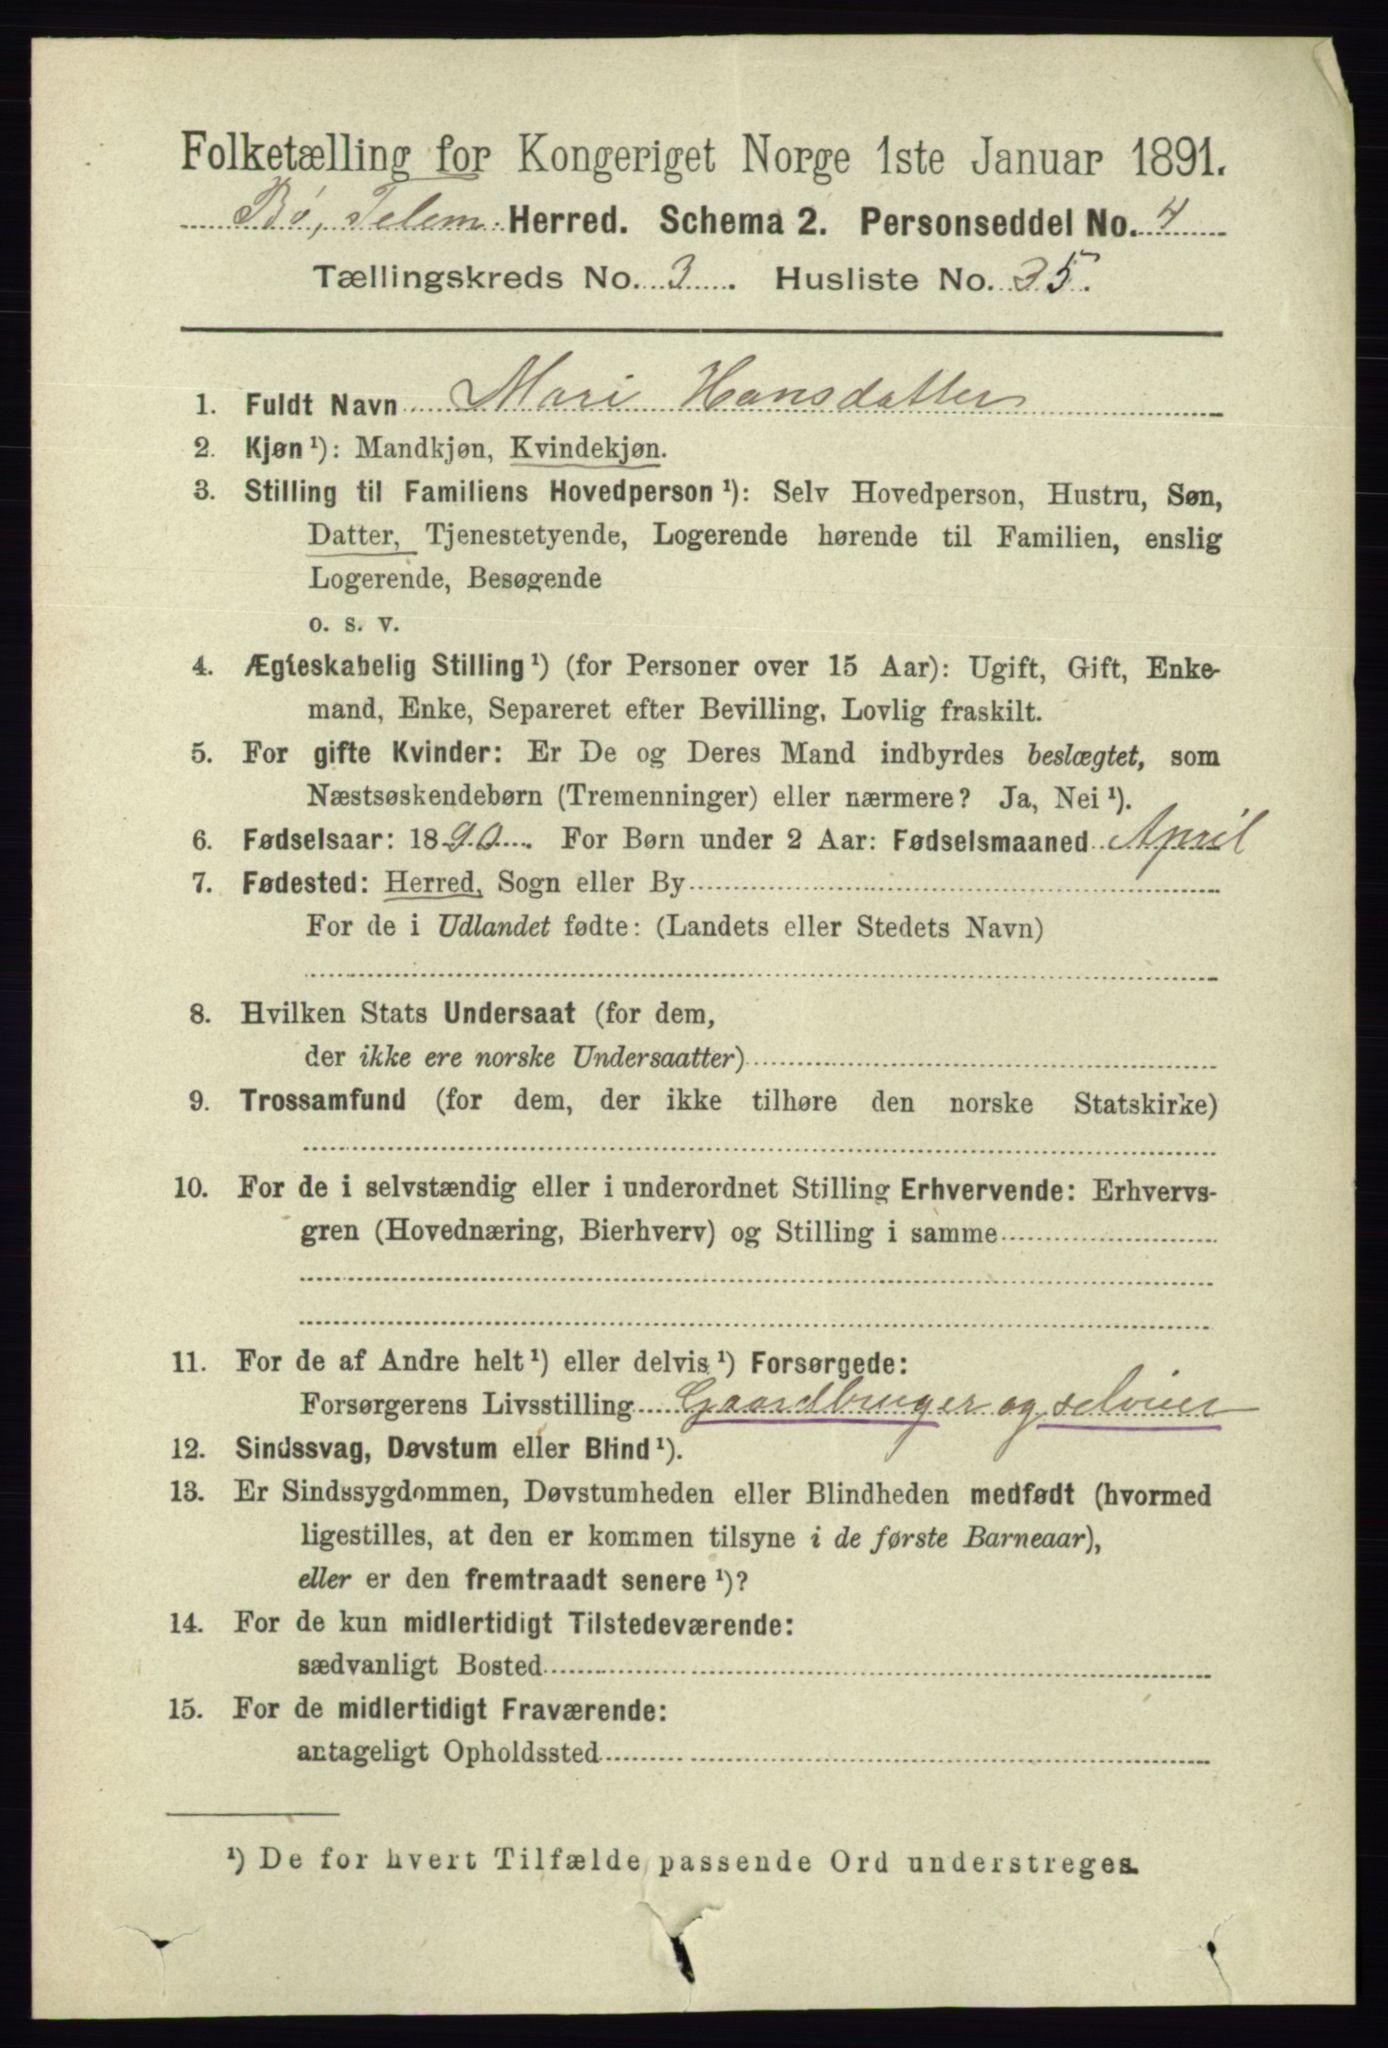 Folketælling for Kongeriget Norge 1ste Januar 1891.
Bø, Telem. Herred. Schema 2. Personseddel No. 4
Tællingskreds No. 3. Husliste No. 35.
1. Fuldt Navn Mari Hansdatter
2. Kjøn ¹): Mandkjøn, Kvindekjøn.
3. Stilling til Familiens Hovedperson ¹): Selv Hovedperson, Hustru, Søn,
Datter, Tjenestetyende, Logerende hørende til Familien, enslig
Logerende, Besøgende
o. s. v.
4. Ægteskabelig Stilling ¹) (for Personer over 15 Aar): Ugift, Gift, Enke-
mand, Enke, Separeret efter Bevilling, Lovlig fraskilt.
5. For gifte Kvinder: Er De og Deres Mand indbyrdes beslægtet, som
Næstsøskendebørn (Tremenninger) eller nærmere? Ja, Nei ¹).
6. Fødselsaar: 1890. For Børn under 2 Aar: Fødselsmaaned April
7. Fødested: Herred, Sogn eller By
For de i Udlandet fødte: (Landets eller Stedets Navn)
8. Hvilken Stats Undersaat (for dem,
der ikke ere norske Undersaatter)
9. Trossamfund (for dem, der ikke tilhøre den norske Statskirke)
10. For de i selvstændig eller i underordnet Stilling Erhvervende: Erhvervs-
gren (Hovednæring, Bierhverv) og Stilling i samme
11. For de af Andre helt ¹) eller delvis ¹) Forsørgede:
Forsørgerens Livsstilling Gaardbruger og selveier
12. Sindssvag, Døvstum eller Blind ¹).
13. Er Sindssygdommen, Døvstumheden eller Blindheden medfødt (hvormed
ligestilles, at den er kommen tilsyne i de første Barneaar),
eller er den fremtraadt senere ¹)?
14. For de kun midlertidigt Tilstedeværende:
sædvanligt Bosted
15. For de midlertidigt Fraværende:
antageligt Opholdssted
¹) De for hvert Tilfælde passende Ord understreges.